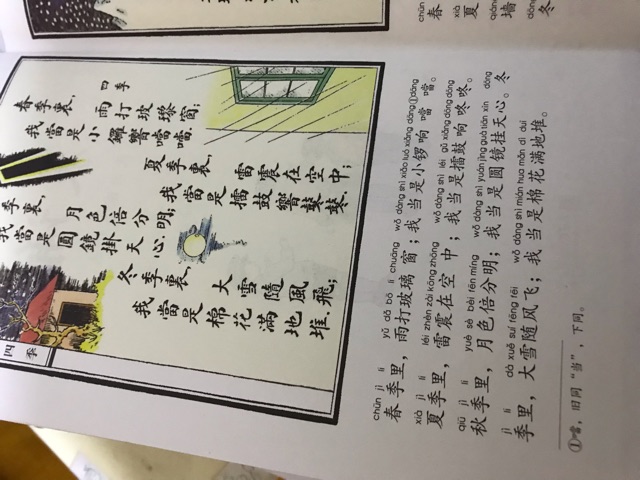 四季
春季裏,
雨打玻瓈窗;
我當是小鑼響噹噹.
夏季裏,
雷震在空中;
我當是擂鼓響鼕鼕.
季裏,
月色倍分明;
我當是圓鏡掛天心.
冬季裏,
大雪隨風飛;
我當是棉花滿地堆.
四季
chūn
春
xià
夏
qiáng
墙
dōng
冬
chūn jì lǐ yǔ dǎ bō li chuāng wǒ dāng shì xiǎo luó xiǎng dāng ① dāng
春季里，雨打玻璃窗；我当是小锣响噹噹。
xià jì lǐ léi zhèn zài kōng zhōng wǒ dāng shì léi gǔ xiǎng dōng dōng
夏季里，雷震在空中；我当是擂鼓响咚咚。
qiū jì lǐ yuè sè bèi fēn míng wǒ dāng shì yuán jìng guà tiān xīn dōng
秋季里，月色倍分明；我当是圆镜挂天心。冬
jì lǐ dà xuě suí fēng fēi wǒ dāng shì mián huā mǎn dì duī
季里，大雪随风飞；我当是棉花满地堆。
①噹，旧同“当”，下同。